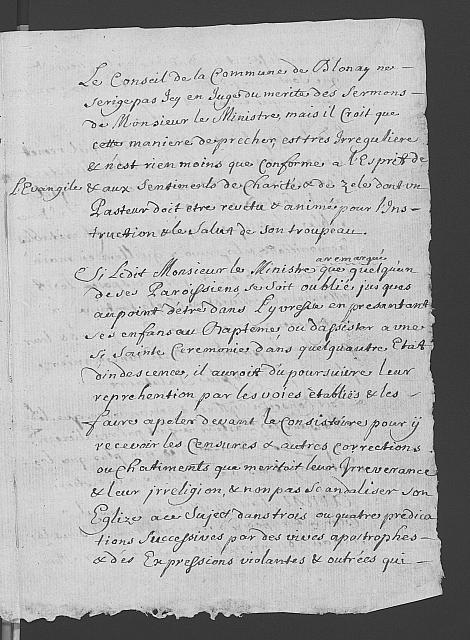 Le Conseil de la Commune de Blonay ne
serige pas Icy en Juge du merite des Sermons
de Monsieur le Ministre, mais il Croit que
cette maniere de precher, est tres Irreguliere
& n'est rien moins que Conforme a l'Esprit de
l'Evangile & aux Sentiments de Charité & de Zele dont un
Pasteur doit etre revetu & animée pour l'Ins-
truction & le Salut de son troupeau.
Si Ledit Monsieur le Ministre a remarqué que quelqu'un
de ses Paroissiens se soit oublié, jusques
au point d'etre dans l'yvresse en presantant
ses enfans au Baptême, ou d'assister a une
Si Sainte Ceremonie dans quelqu'autre Etat
d'indescence, il auroit du poursuivre leur
reprehention par les voies établiés & les
faire apeler devant le Consistoire pour ÿ
recevoir les Censures & autres Corrections
ou Chatiments que meritoit leur Irreverance
& leur jrreligion, & non pas scandaliser son
Eglize a ce Suject dans trois ou quatre predica-
tions Successives par des vives apostrophes
& des Expressions violantes & outrées qui